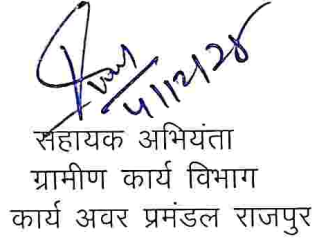 4/12/25
सहायक अभियंता
ग्रामीण कार्य विभाग
कार्य अवर प्रमंडल राजपुर